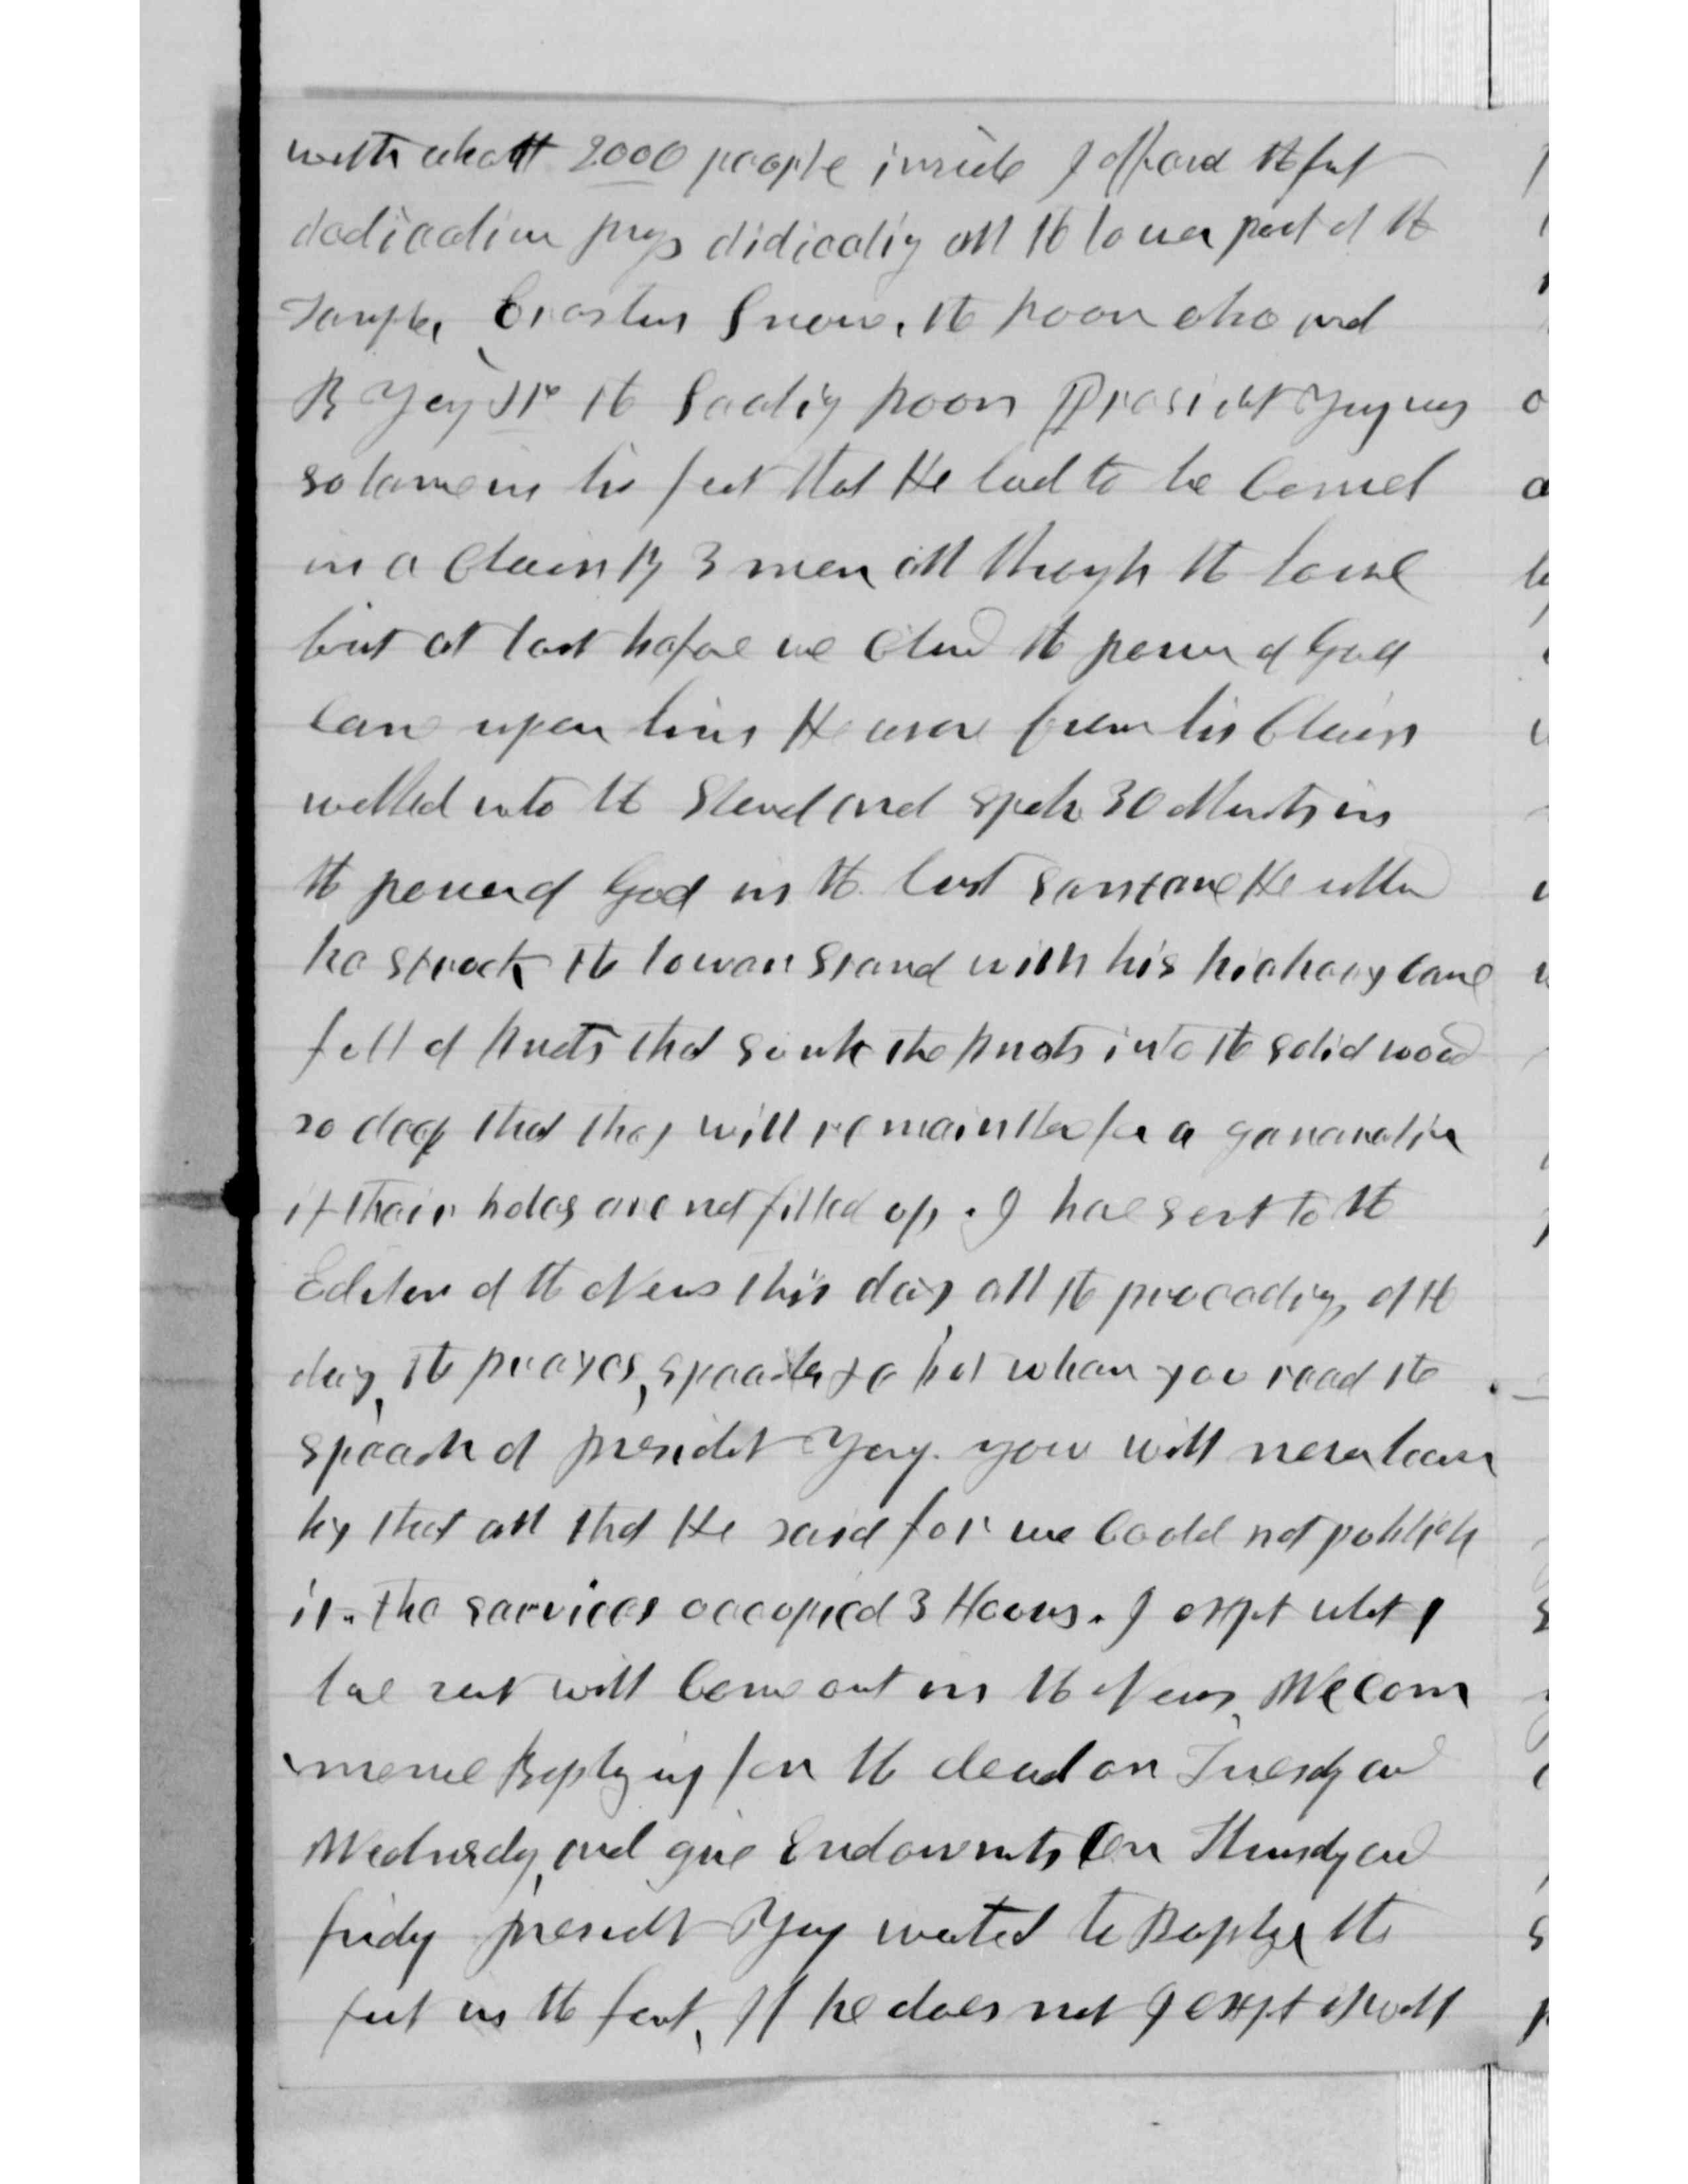 with about 2000 people inside I offord the first
dedication prayer didicating all the lower part of the
Temple, Erastus Snow, the poor also and
B Young Jr the Sealing room President Young was
so lame in his feet that He had to be Carried
in a Chair by 3 men all through the house
but at last before we closed the power of God
Came upon him He arose from his Chair
walked into the Stand and spoke 30 Minuts in
the power of God in the last santance He utterd
he struck the lower stand with his hickory cane
full of knots that sunk the knots into the solid wood
so deep that they will remain there for a generation
if their holes are not filled up. I have sent to the
Editor of the News this day all the proceedings of the
day, the prayers, speeches &c but when you read the
speech of president Young you will never learn
by that all that He said for we Could not publish
it. the services occupied 3 Hours. I expet what I
have sent will Come out in the News, We com
mence Baptizing for the dead on Tuesday and
Wednesday, and give Endowments on Thursday and
friday president Young wanted to Baptize the
first in the font, If he does not I expet I will